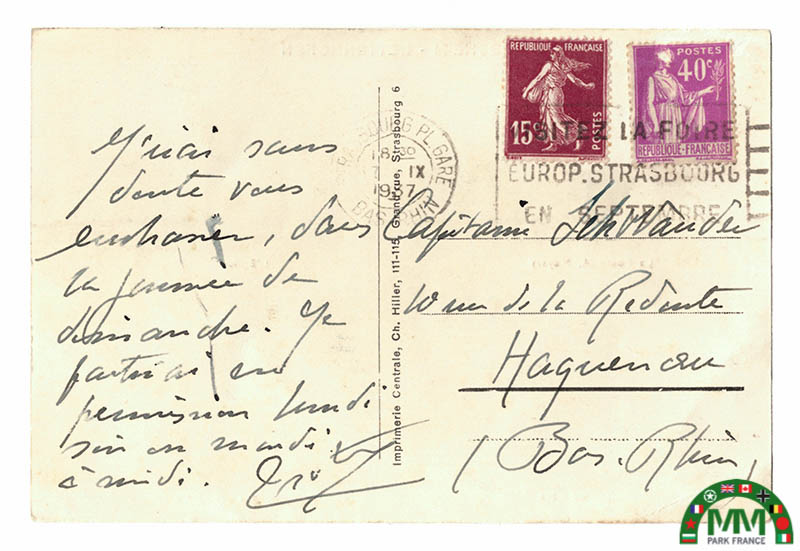 J'irai sans
doute vous
embrasser, dans
la journée de
dimanche. Je
partirai en
permission lundi
soir ou mardi
à midi.
Imprimerie Centrale, Ch. Hiller, 111-115, Grand'rue, Strasbourg 6
REPUBLIQUE FRANÇAISE
15c
POSTES
POSTES
40c
REPUBLIQUE-FRANÇAISE
STRASBOURG PL GARE
18 30
7 IX
1937
BAS-RHIN
VISITEZ LA FOIRE
EUROP. STRASBOURG
EN SEPTEMBRE
Capitaine
10 rue de la Redoute
Haguenau
(Bas-Rhin)
MM
PARK FRANCE